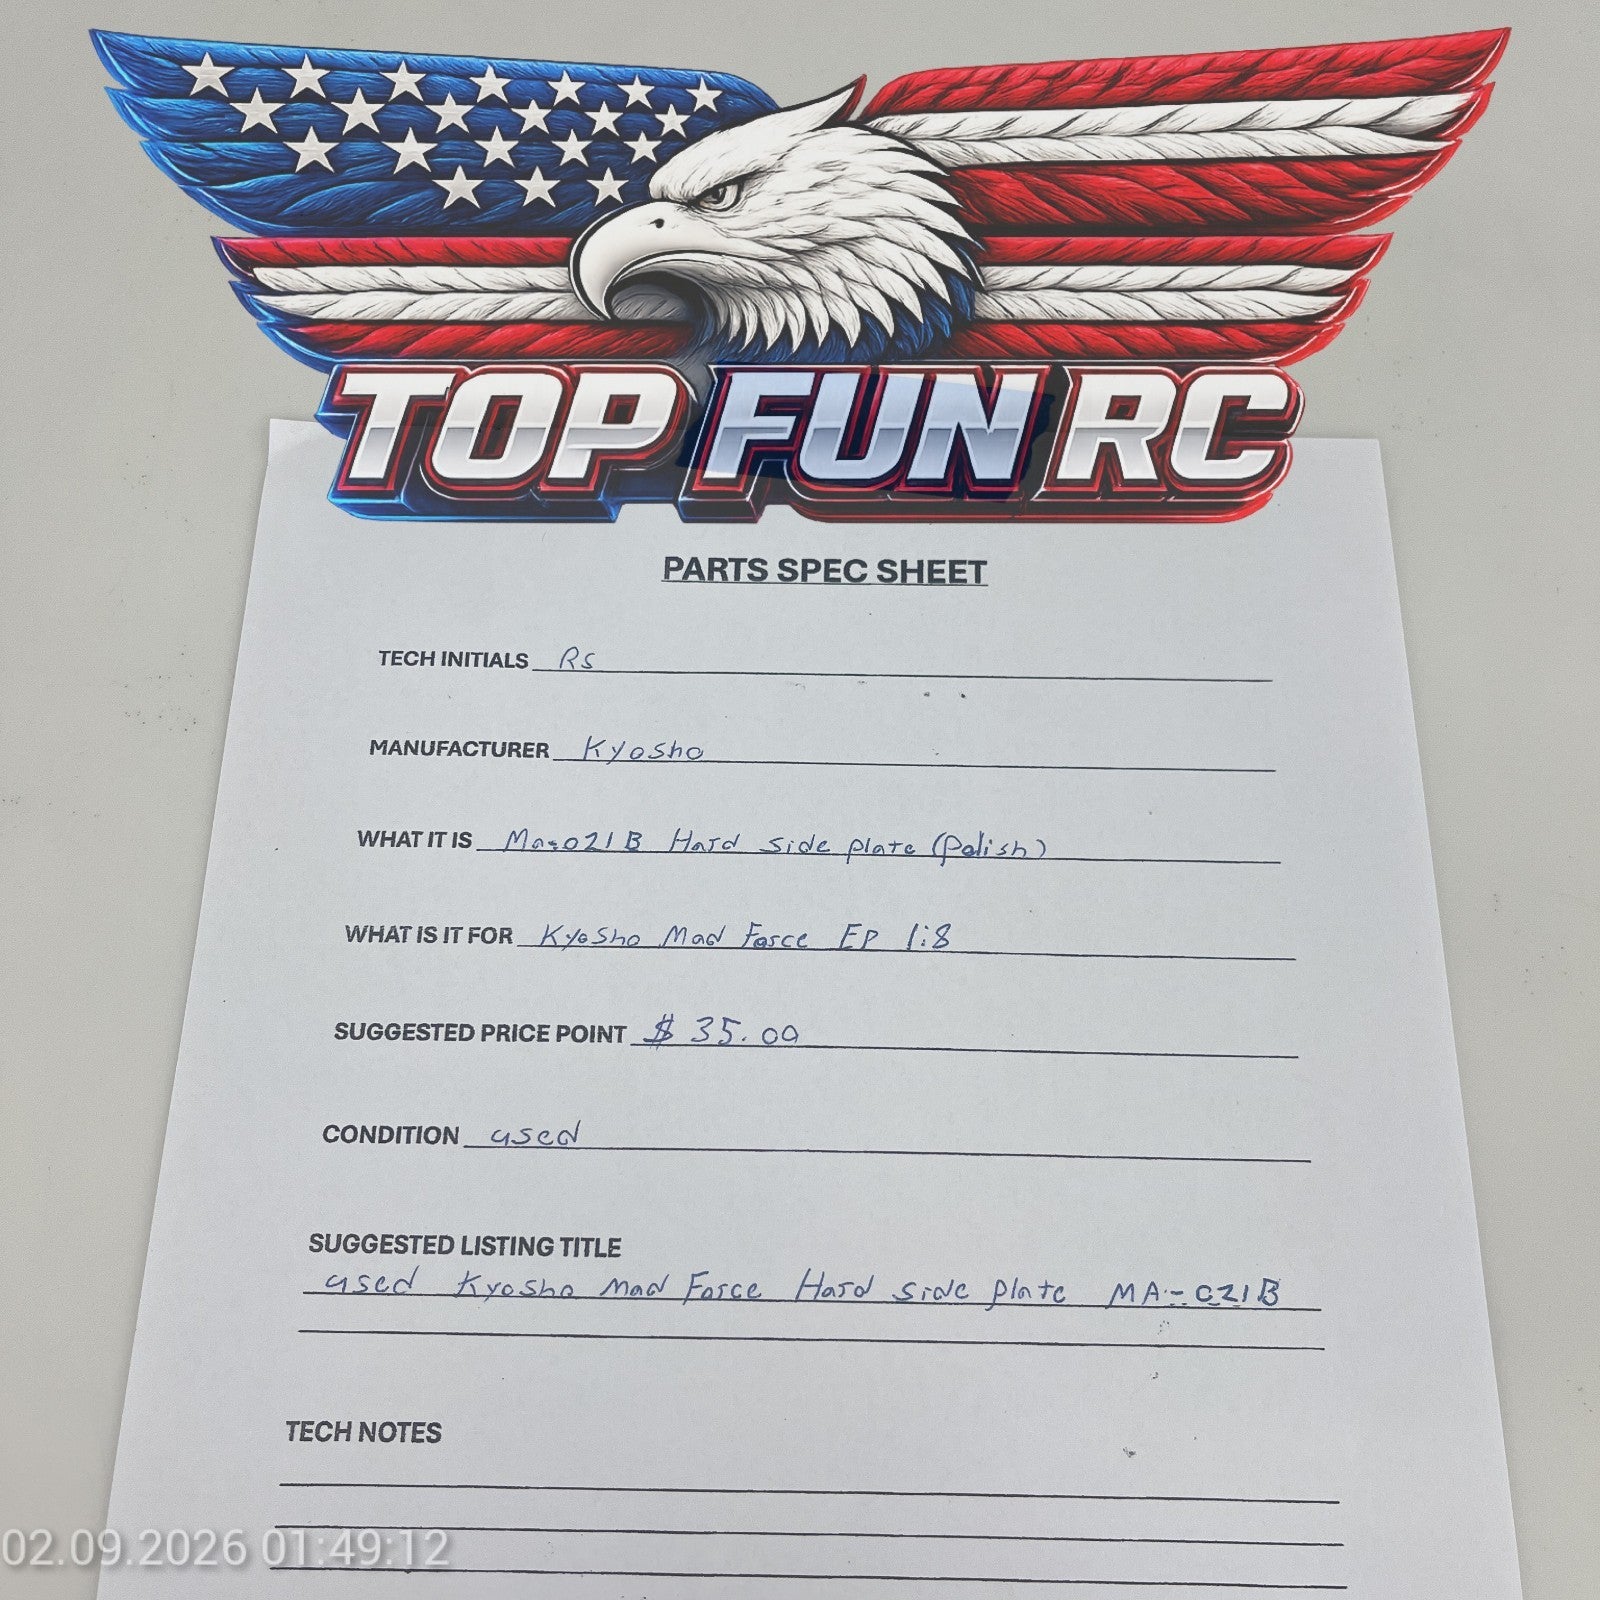 TOP FUN RC
PARTS SPEC SHEET
TECH INITIALS RS
MANUFACTURER Kyosho
WHAT IT IS Ma-021B Hard side plate (Polish)
WHAT IS IT FOR Kyosho Mad Force EP 1:8
SUGGESTED PRICE POINT $ 35.00
CONDITION used
SUGGESTED LISTING TITLE
used Kyosho Mad Force Hard side plate MA-021B
TECH NOTES
02.09.2026 01:49:12